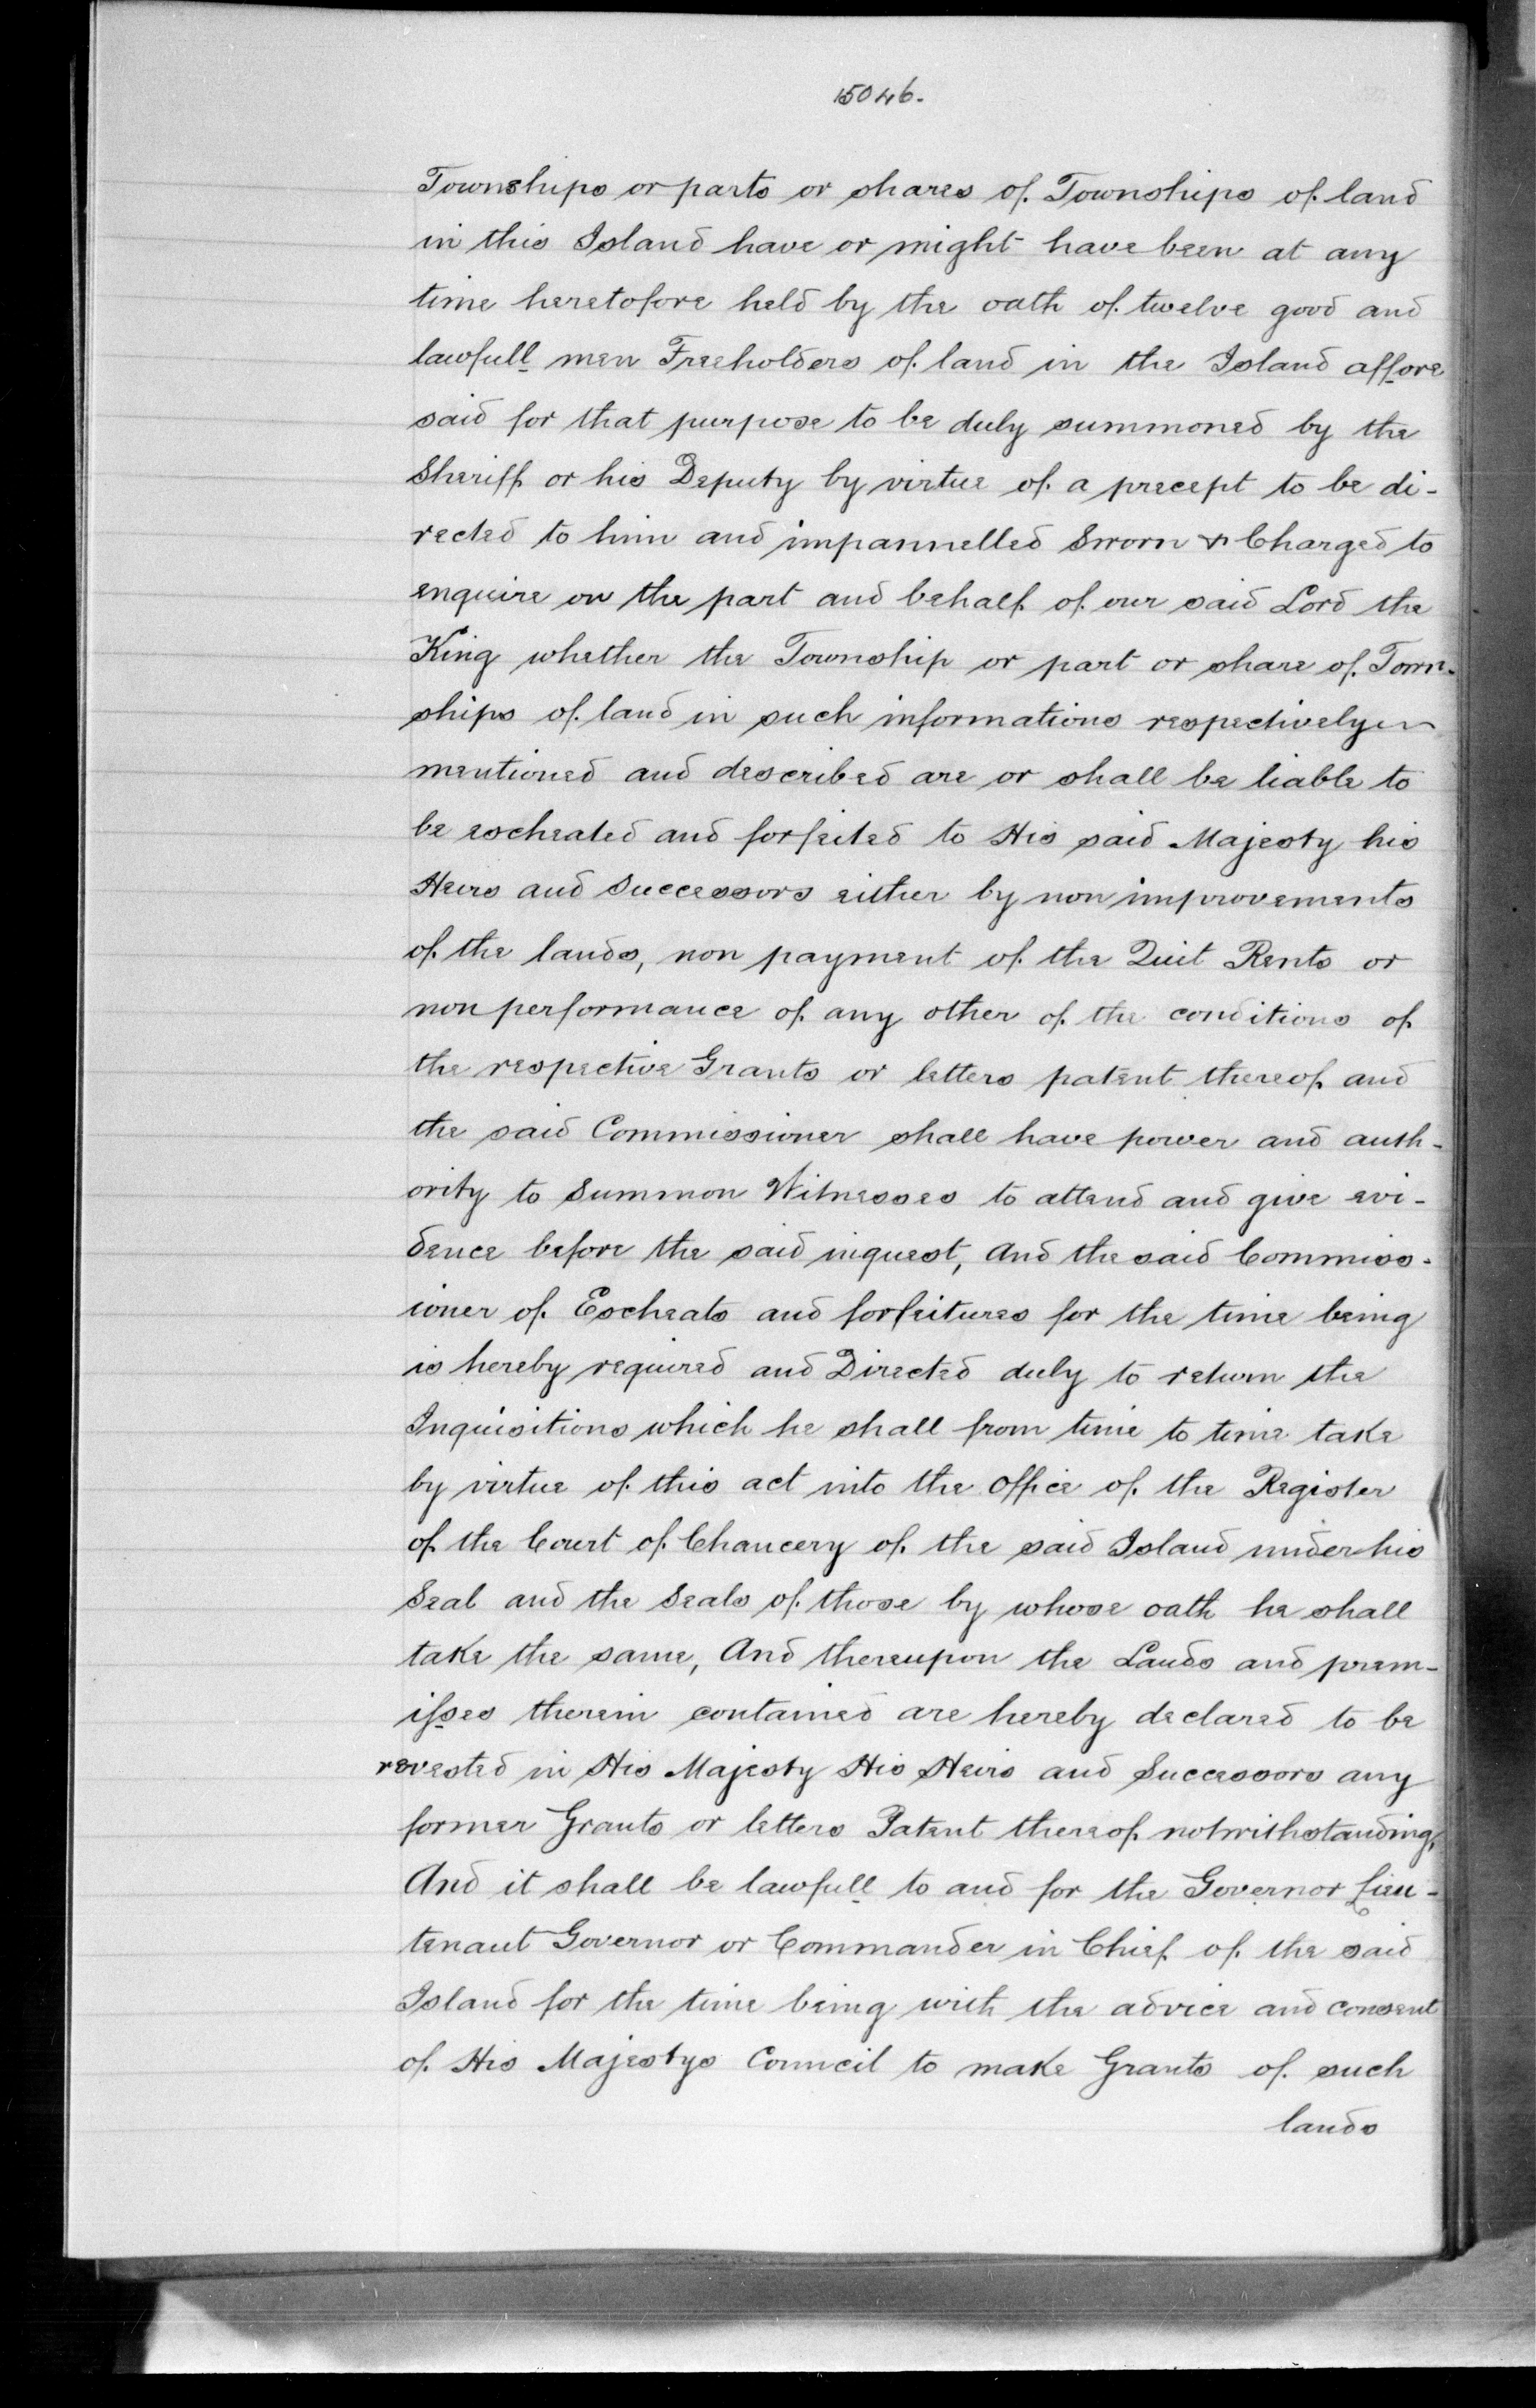 15046.
Townships or parts or shares of Townships of land
in this Island have or might have been at any
time heretofore held by the oath of twelve good and
lawfull men Freeholders of land in the Island affore
said for that purpose to be duly summoned by the
Sheriff or his Deputy by virtue of a precept to be di-
rected to him and impannelled Sworn & Charged to
enquire on the part and behalf of our said Lord the
King whether the Township or part or share of Town-
ships of land in such informations respectively
mentioned and described are or shall be liable to
be escheated and forfeited to His said Majesty his
Heirs and Successors either by non improvements
of the lands, non payment of the Quit Rents or
non performance of any other of the conditions of
the respective Grants or letters patent thereof and
the said Commissioner shall have power and auth-
ority to Summon Witnesses to attend and give evi-
dence before the said inquest, And the said Commiss-
ioner of Escheats and forfeitures for the time being
is hereby required and Directed duly to return the
Inquisitions which he shall from time to time take
by virtue of this act into the Office of the Register
of the Court of Chancery of the said Island under his
Seal and the Seals of those by whose oath he shall
take the same, And thereupon the Lands and prem-
isses therein contained are hereby declared to be
revested in His Majesty His Heirs and Successors any
former Grants or letters Patent thereof notwithstanding,
And it shall be lawfull to and for the Governor Lieu-
tenant Governor or Commander in Chief of the said
Island for the time being with the advice and consent
of His Majestys Council to make Grants of such
lands